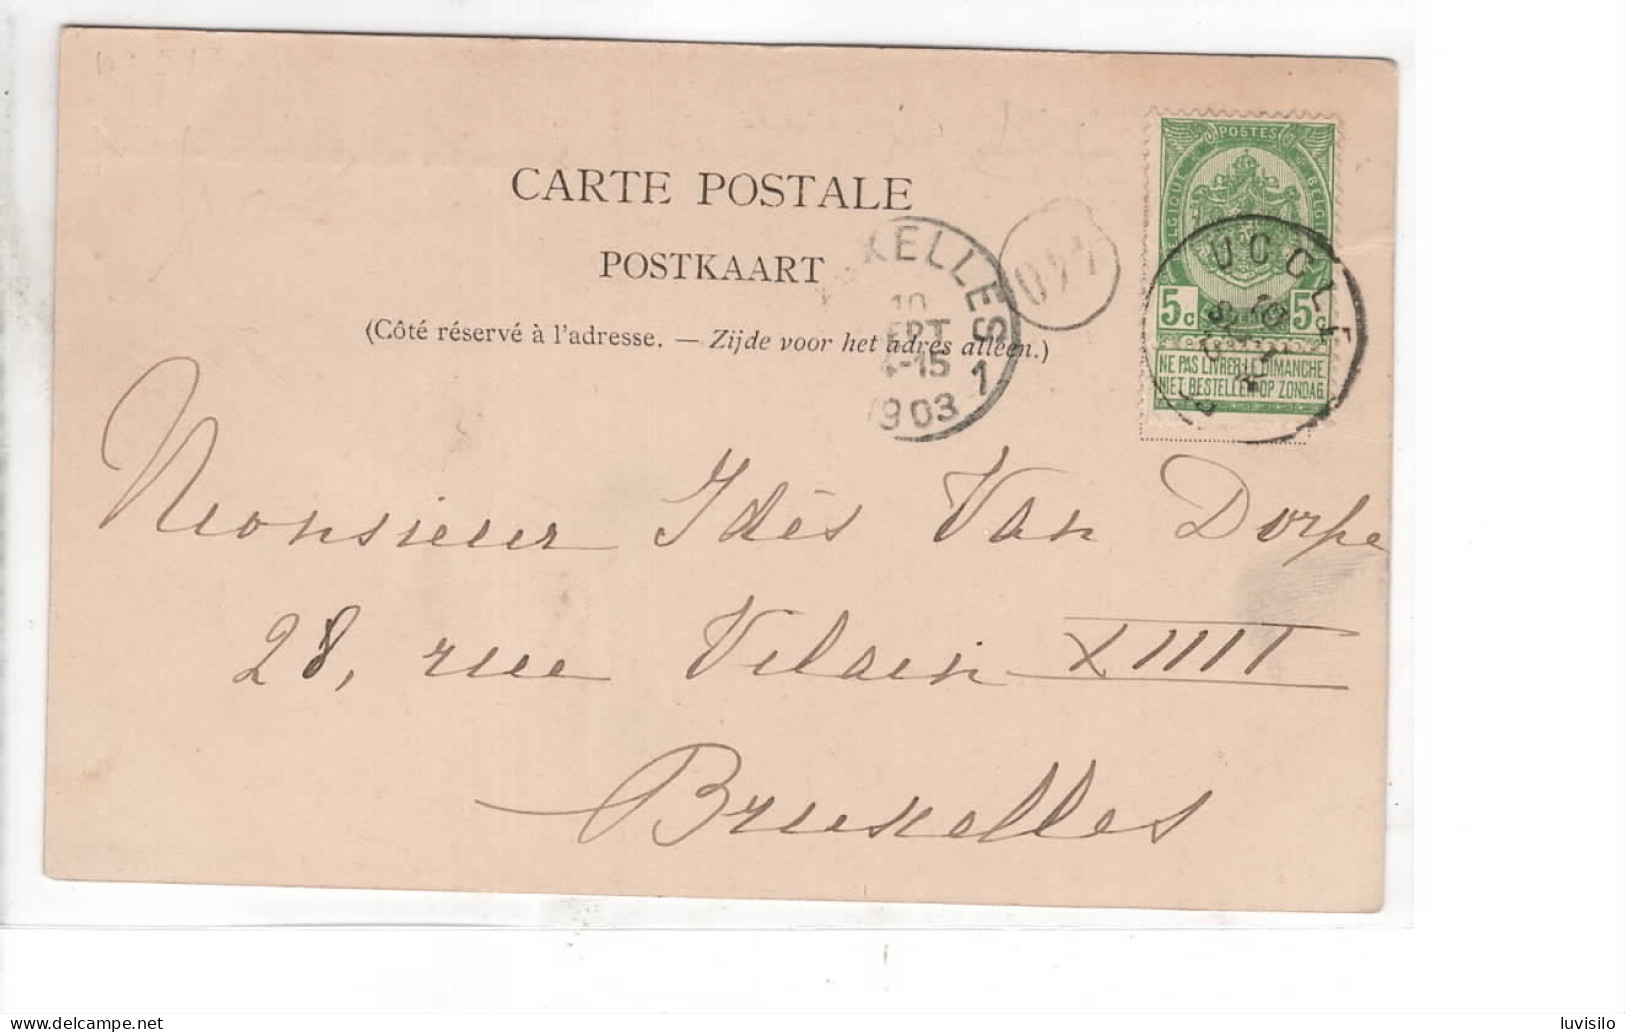 POSTES
CARTE POSTALE
POSTKAART
(Côté réservé à l'adresse. — Zijde voor het adres alleen.)
5c 5c
NE PAS LIVRER LE DIMANCHE
NIET BESTELLEN OP ZONDAG
UCCLE
10
4-15
1903
1
Monsieur Idès Van Dorpe
28, rue Vilain XIIII
Bruxelles
delcampe.net
luvisilo